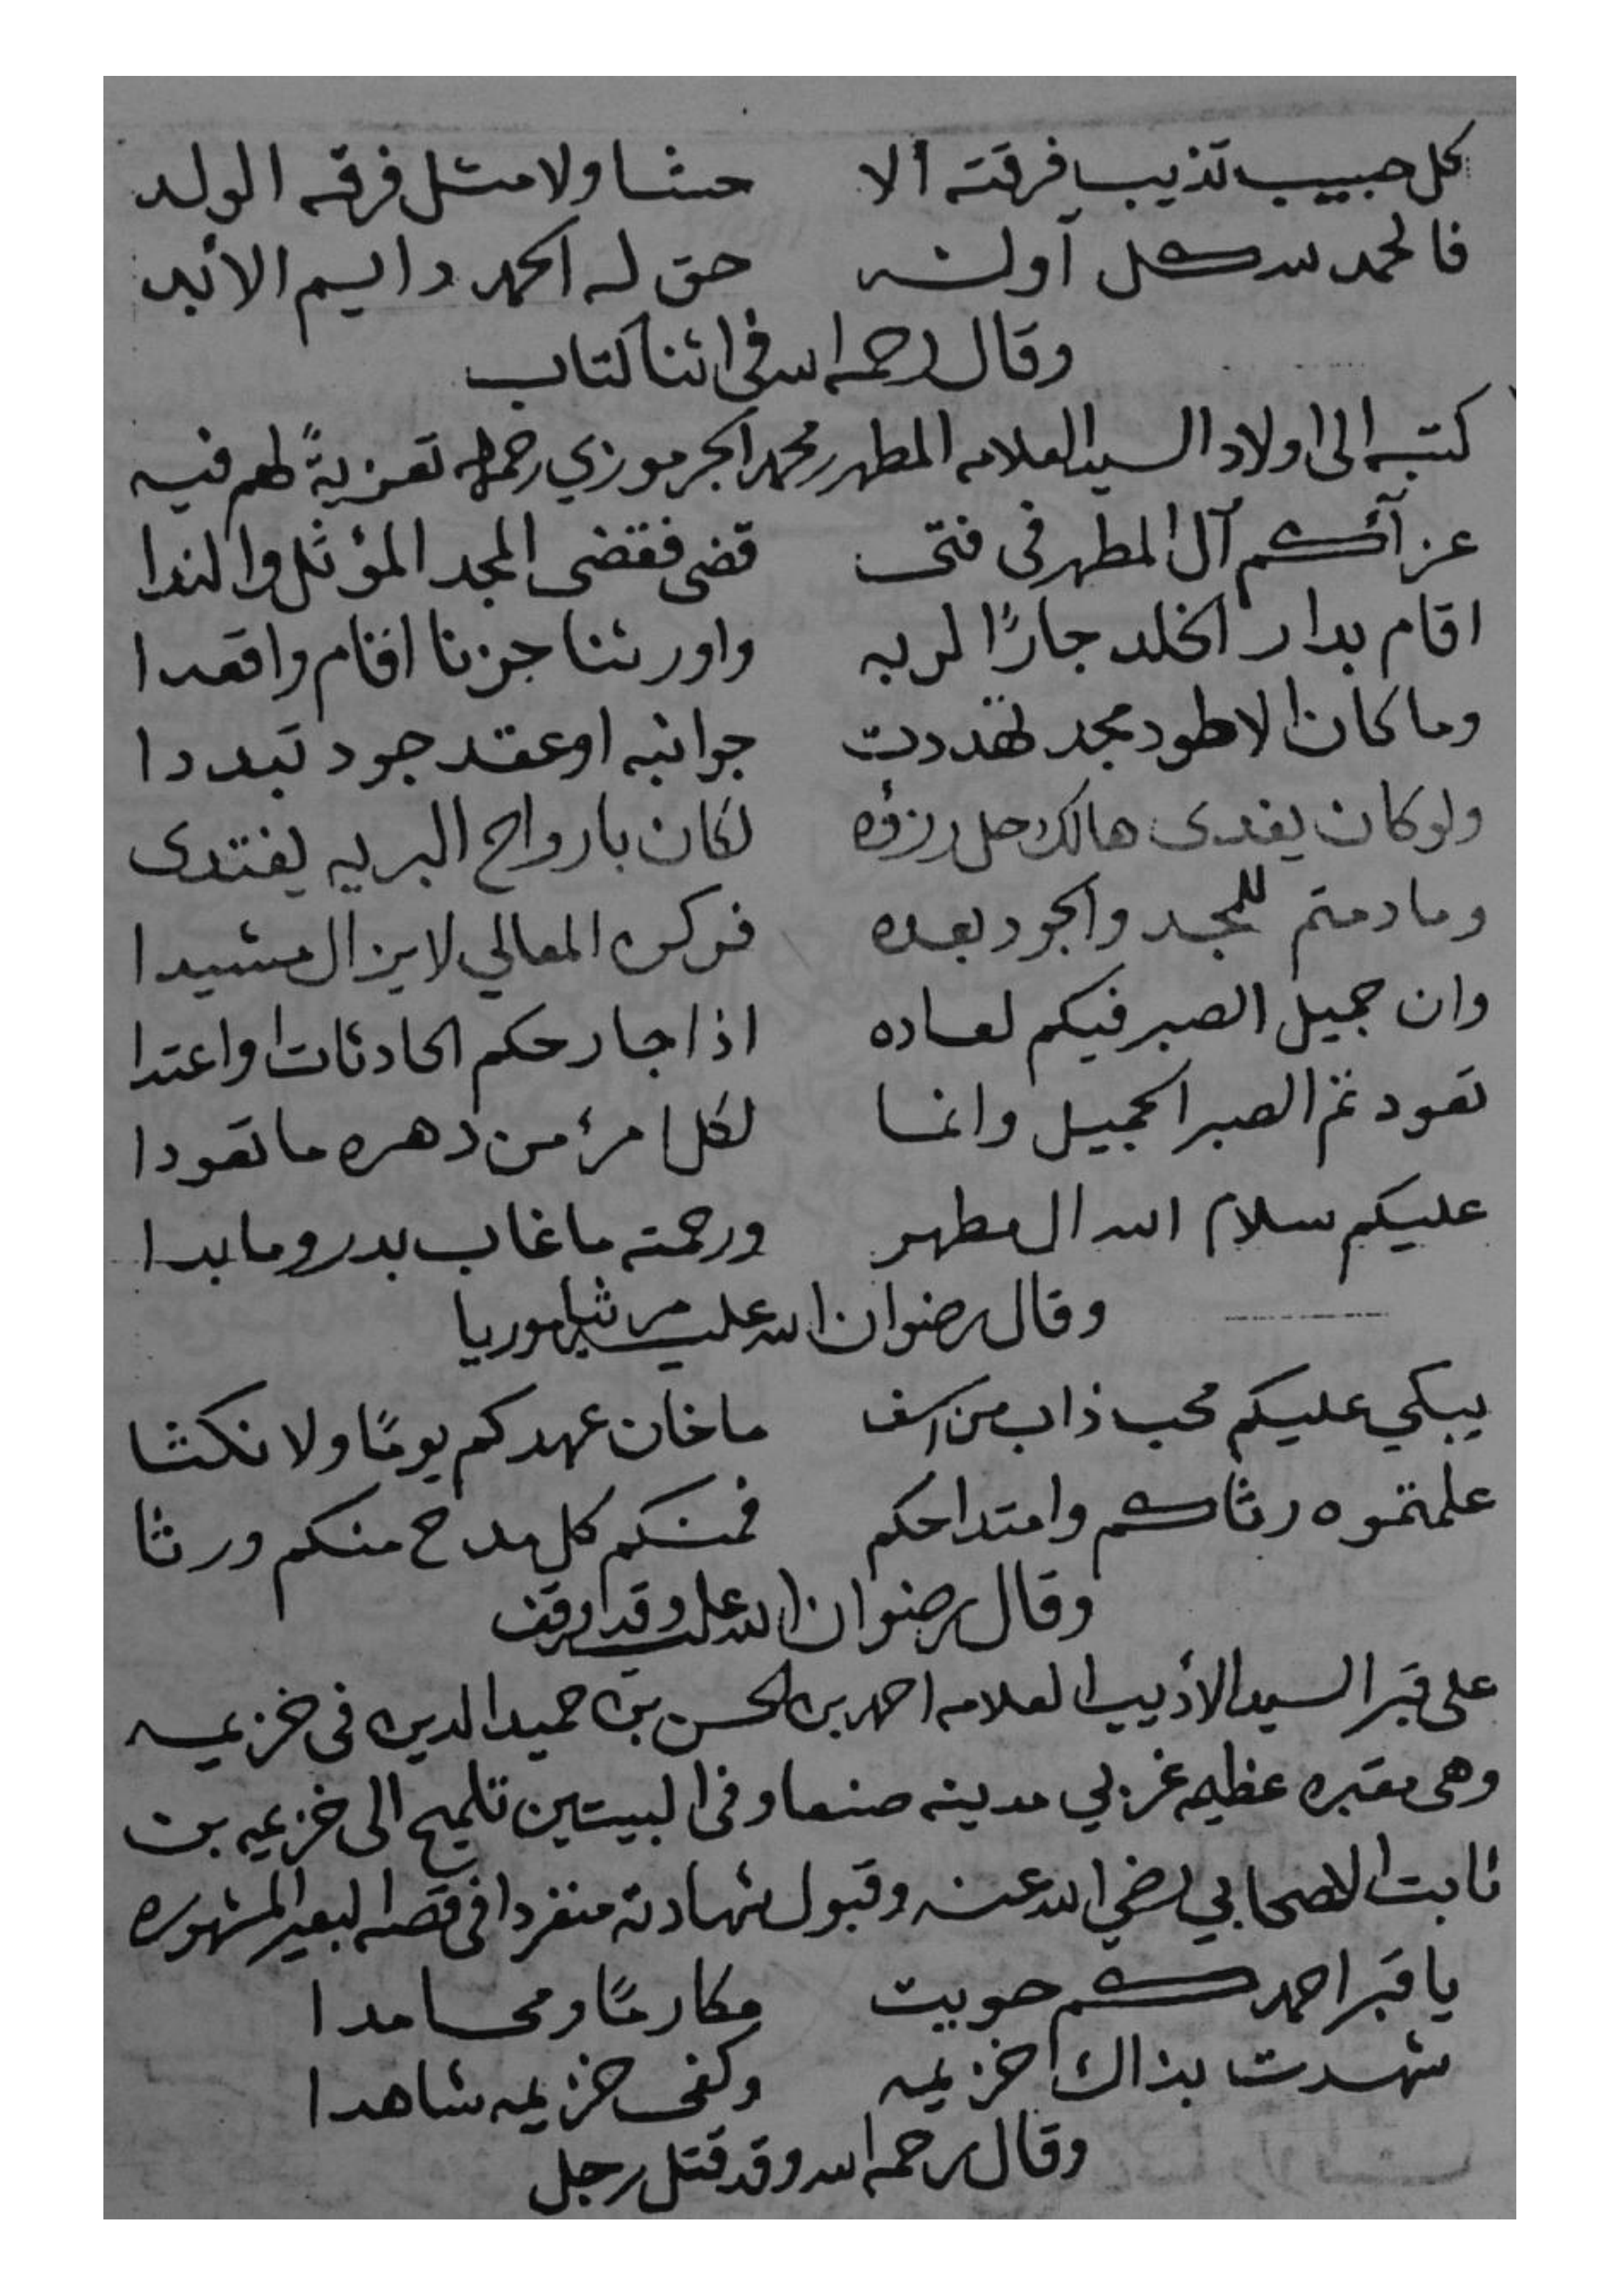 كل حبيب تذيب فرقته الا حشا ولا مثل فرقه الولد
فالحمد لله كل آونه حق له الحمد دايم الأبد
وقال رحمه الله في اثنا كتاب
كتبه الى اولاد السيد العلامه المطهر محمد الجرموزي رحمه الله تعزيةً لهم فيه
عزآئكم آل المطهر في فتى قضى فقضى المجد المؤثل والندا
اقام بدار الخلد جارًا لربه واورثنا حزنا اقام واقعدا
وما كان الا طود مجد تهددت جوانبه او عقد جود تبددا
ولو كان يفدى هالك حل رزؤه لكان بارواح البريه يفتدى
وما دمتم للمجد والجود بعده فركن المعالي لا يزال مشيدا
وان جميل الصبر فيكم لعاده اذا جار حكم الحادثات واعتدا
تعودتم الصبر الجميل وانما لكل امرئ من دهره ما تعودا
عليكم سلام الله ال مطهر ورحمته ما غاب بدر وما بدا
وقال رضوان الله عليه مرثيا موريا
يبكي عليكم محب ذاب من اسف ما خان عهدكم يومًا ولا نكثا
علمتموه رثاكم وامتداحكم فمنكم كل مدح منكم ورثا
وقال رضوان الله عليه وقد وقف
على قبر السيد الأديب العلامه احمد بن الحسن بن حميد الدين في خزيمه
وهي مقبره عظيمه غربي مدينه صنعا وفي البيتين تلميح الى خزيمه بن
ثابت الصحابي رضي الله عنه وقبول شهادته منفردا في قصه البعير المشهوره
يا قبر احمد كم حويت مكارمًا ومحامدا
شهدت بذاك خزيمه وكفى خزيمه شاهدا
وقال رحمه الله وقد قتل رجل